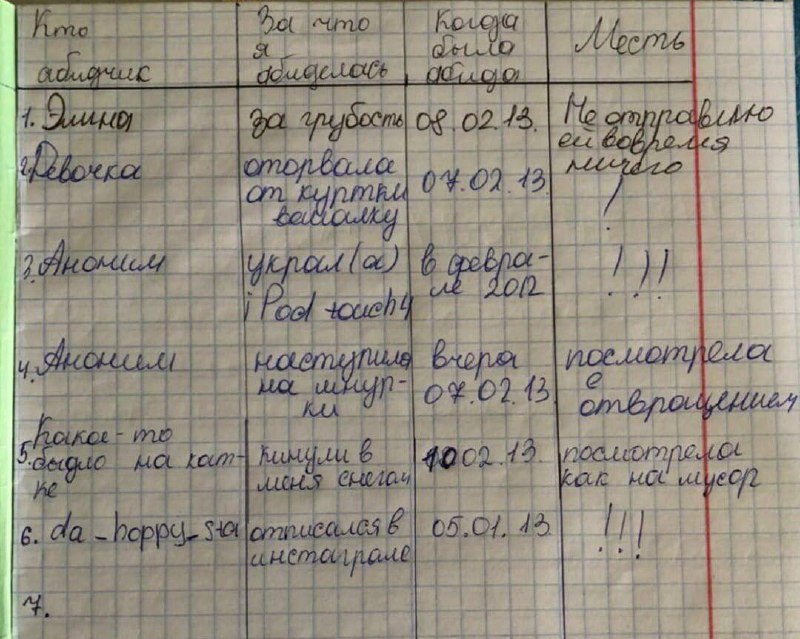 Кто
абидчик
За что
я
абиделась
Когда
была
абида
Месть
1. Элина
за грубость
08.02.13.
Не отправлю
ей вовремя
ничего
2. Девочка
оторвала
от куртки
вешалку
07.02.13
!
3. Аноним
украл(а)
iPod touch4
в февра-
ле 2012
!!!
4. Аноним
наступила
на шнур-
ки
вчера
07.02.13
посмотрела
с
отвращением
5. Какое-то
быдло на кат-
ке
кинули в
меня снегом
10 02.13.
посмотрела
как на мусор
6. da_happy_sta
отписался в
инстаграме
05.01.13
!!!
7.